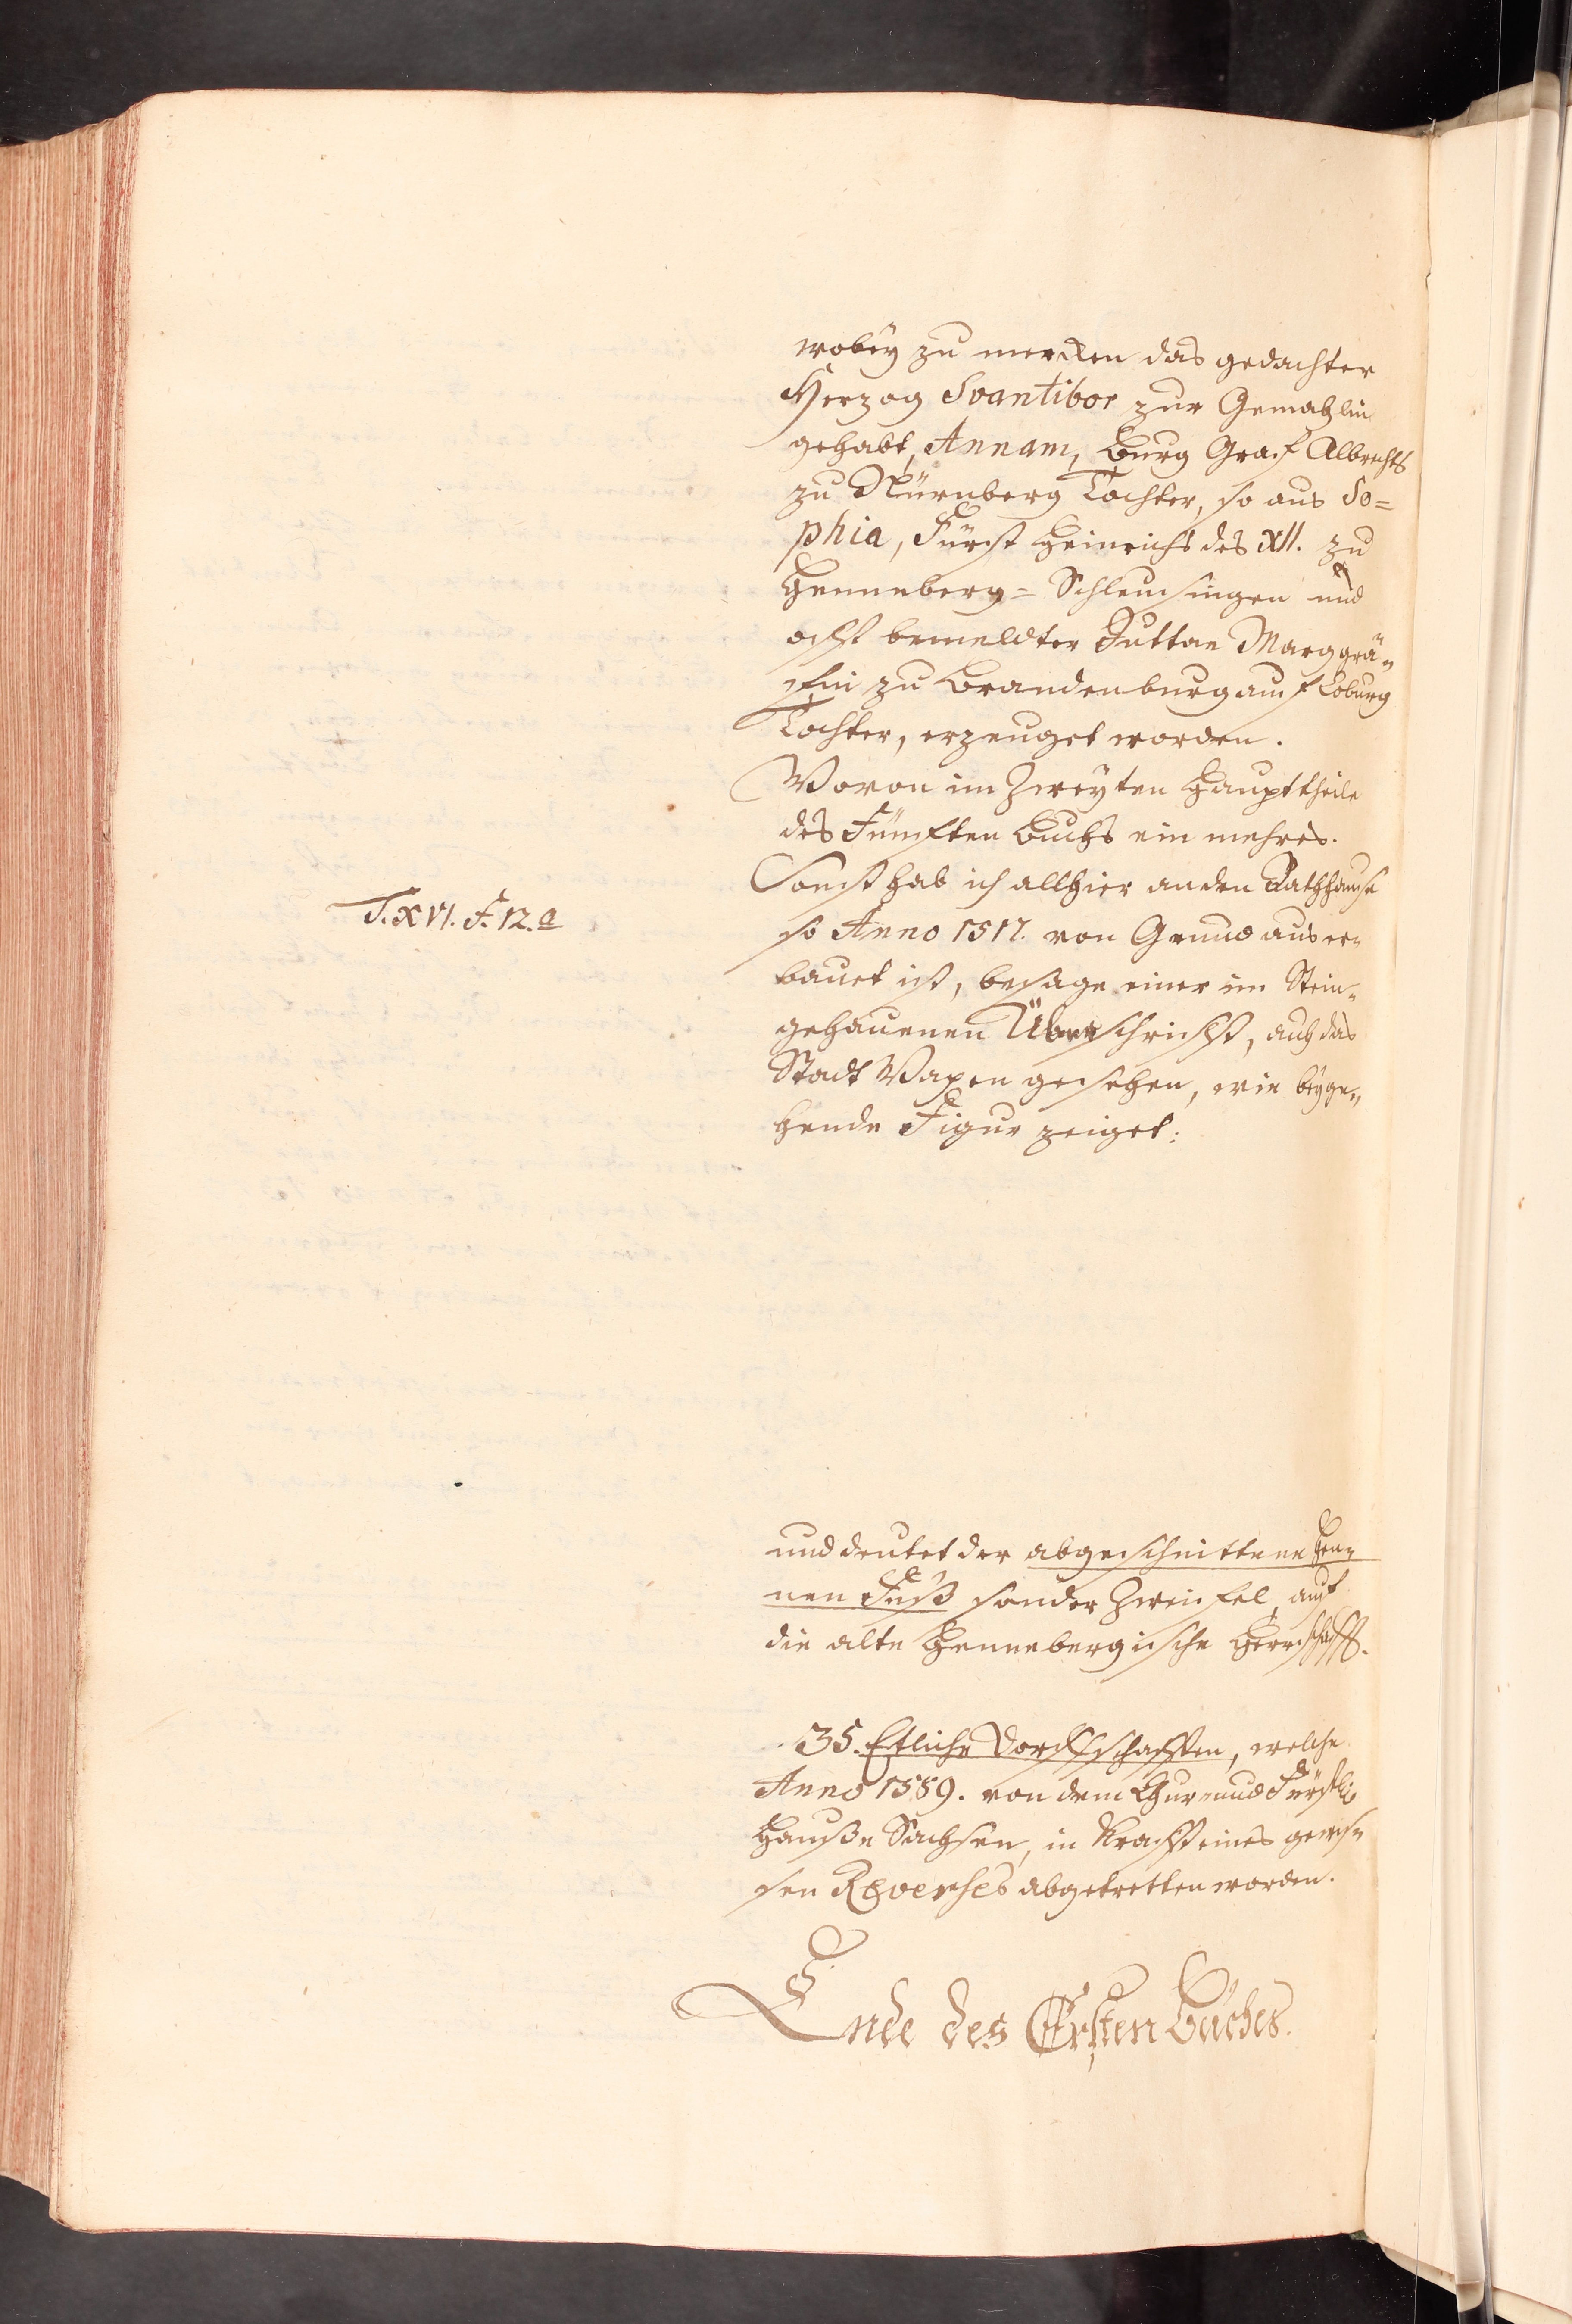 wobey zu mercken das gedachter
Herzog Svantibor zur Gemahlin
gehabt, Annam, Burg Graf Albrechts
zu Nürnberg Tochter, so aus So=
phia, Fürst Heinrichs des XII. zu
Henneberg= Schleusingen und
offt bemeldter Juttae Marggrä=
fin zu Brandenburg auf Coburg
Tochter, erzeuget worden.
Wovon im Zweyten Haupttheile
des Fünften Buchs ein mehres.
Sonst hab ich allhier an den Rathhause
T. XVI. F. 12. a
so Anno 1517. von Grund aus er=
bauet ist, besage einer im Stein=
gehauenen Überschrifft, auch das
Stadt Wapen gesehen, wie beyge=
hende Figur zeiget:
und deutet der abgeschnittene Hen=
nen Fuß sonder Zweifel, auf
die alte Hennebergische Herrschafft.
35. Etliche Dorffschafften, welche
Anno 1589. von dem Chur und Fürstl.
Hauße Sachsen, in Krafft eines gewis=
sen Reverses abgetretten worden.
Ende des Ersten Buches.